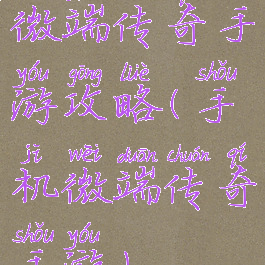 微端传奇手
yóu gōng lüè shǒu
游攻略(手
jī wēi duān chuán qí
机微端传奇
shǒu yóu
手游)